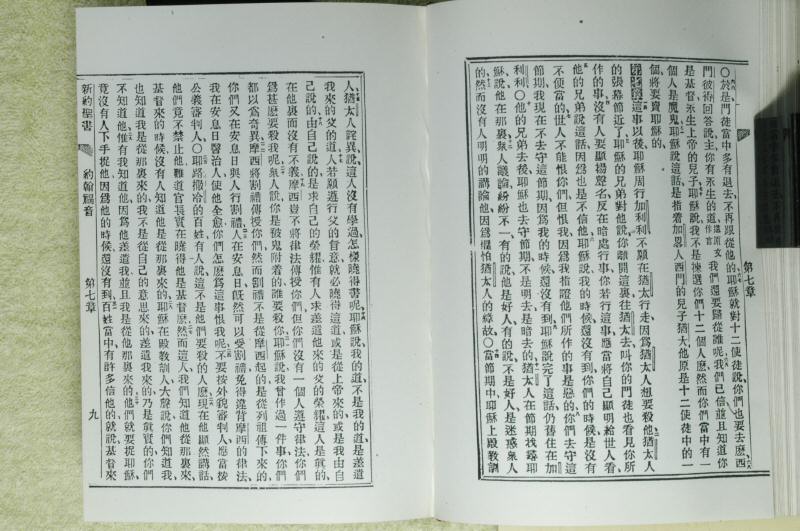 ○於是門徒當中多有退去不再跟從他的耶穌就對十二使徒說你們也要去麽西
門彼得回答說主你有永生的道我們還要歸從誰呢我們已信並且知道你
是基督永生上帝的兒子耶穌說我不是揀選你們十二個人麽然而你們當中有一
個人是魔鬼耶穌說這話是指着加畧人西門的兒子猶大他原是十二使徒中的一
個將要賣耶穌的
第七章這事以後耶穌周行加利利不願在猶太行走因爲猶太人想要殺他猶太人
的張幕節近了耶穌的兄弟對他說你離開這裏往猶太去叫你的門徒也看見你所
作的事沒有人要顯揚聲名反在暗處行事你若行這事應當將自己顯明給世人看
他的兄弟說這話因爲也是不信他耶穌說我的時候還沒有到你們的時候是沒有
不便當的世人不能恨你們但恨我因爲我指證他們所作的事是惡的你們去守這
節期我現在不去守這節期因爲我的時候還沒有到耶穌說完了這話仍舊住在加
利利○他的兄弟去後耶穌也去守節期不是明去是暗去的猶太人在節期找尋耶
穌說他在那裏衆人議論紛紛不一有的說他是好人有的說不是好人是迷惑衆人
的然而沒有人明明的講論他因爲懼怕猶太人的緣故○當節期中耶穌上殿教訓
第七章
人猶太人詫異說這人沒有學過怎樣曉得書呢耶穌說我的道不是我的道是差遣
我來的父的道人若願遵行父的旨意就必曉得這道或是從上帝來的或是我由自
己說的由自己說的是求自己的榮耀惟有人求差遣他來的父的榮耀這人是眞的
在他裏面沒有不義摩西豈不將律法傳授你們但你們沒有一個人遵守律法你們
爲甚麽要殺我呢衆人說你是被鬼附着的誰要殺你耶穌說我曾作過一件事你們
都以爲奇異摩西將割禮傳授你們然而割禮不是從摩西起的是從列祖傳下來的
你們又在安息日與人行割禮人在安息日旣然可以受割禮免得違背摩西的律法
我在安息日醫治人使他全愈你們怎麽爲這事恨我呢不要按外貌審判人應當按
公義審判人○耶路撒冷的百姓有人說這不是他們要殺的人麽現在他顯然講話
他們竟不禁止他難道官長實在曉得他是基督麽然而這人我們知道他從那裏來
基督來的時候沒有人知道他是從那裏來的耶穌在殿教訓人大聲說你們知道我
也知道我是從那裏來的我不是從自己的意思來的差遣我來的乃是眞實的你們
不知道他惟有我知道他因爲他差遣我並且我是從他那裏來的他們就要捉耶穌
竟沒有人下手捉他因爲他的時候還沒有到百姓當中有許多信他的就說基督來
新約聖書
約翰福音
第七章
九